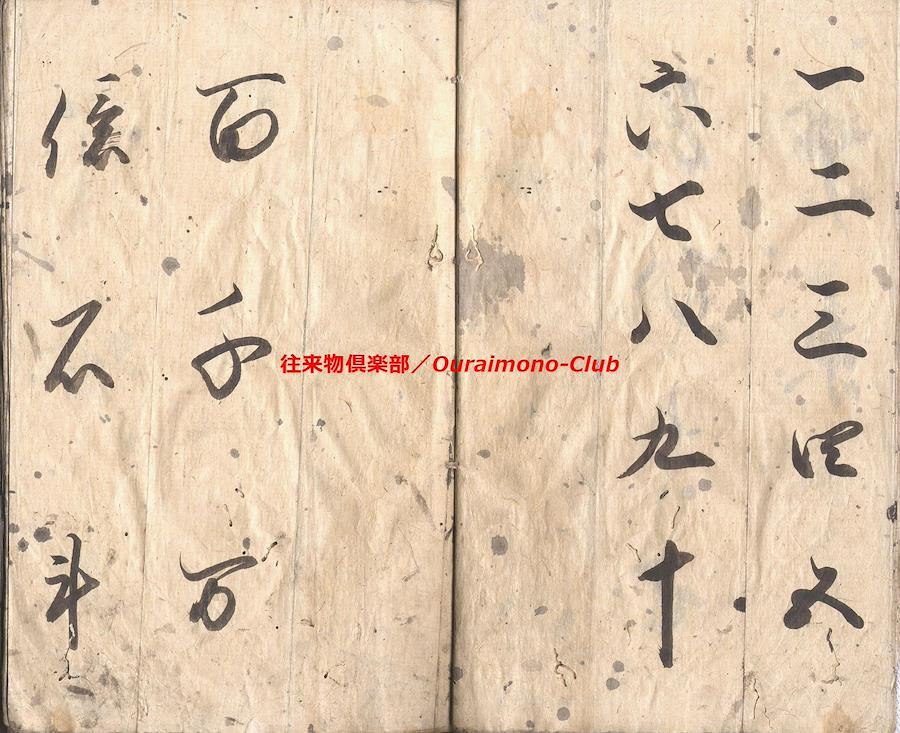 一二三四五
六七八九十
百千万
億石斗
往来物倶楽部／Ouraimono-Club